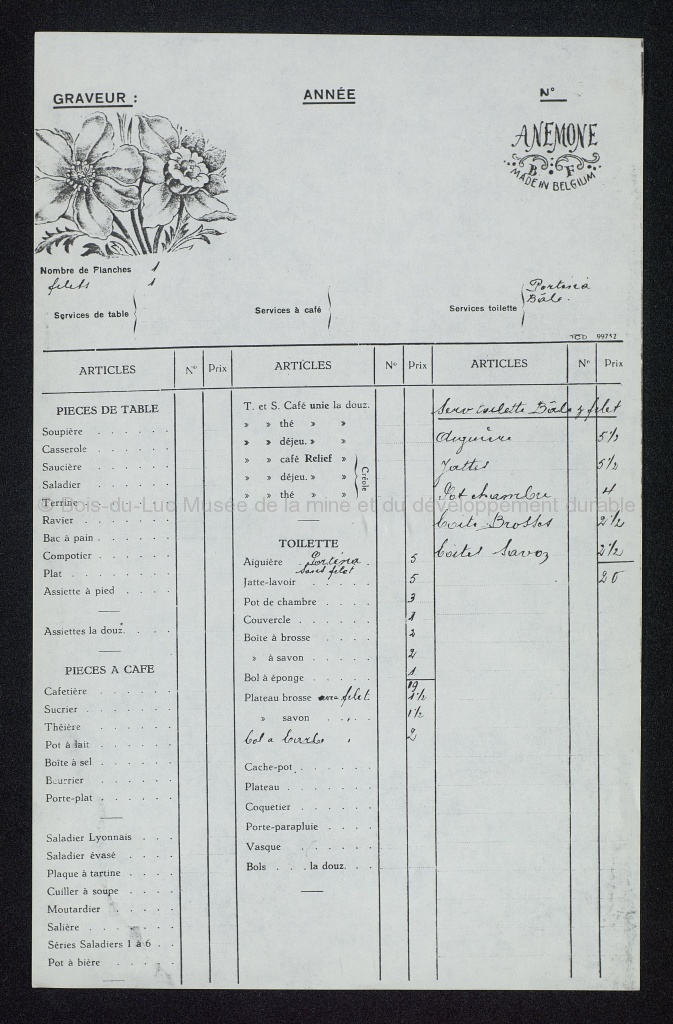 GRAVEUR :
ANNÉE
N°
ANEMONE
B F
MADE IN BELGIUM
Nombre de Planches 1
filets 1
Services de table
Services à café
Services toilette
Portena
Bâle.
99752
ARTICLES N° Prix ARTICLES N° Prix ARTICLES N° Prix
PIECES DE TABLE
Soupière
Casserole
Saucière
Saladier
Terrine
Ravier
Bac à pain
Compotier
Plat
Assiette à pied
Assiettes la douz.
PIECES A CAFE
Cafetière
Sucrier
Théière
Pot à lait
Boîte à sel
Beurrier
Porte-plat
Saladier Lyonnais
Saladier évasé
Plaque à tartine
Cuiller à soupe
Moutardier
Salière
Séries Saladiers 1 à 6
Pot à bière
T. et S. Café unie la douz.
» » thé » »
» » déjeu. » »
» » café Relief »
» » déjeu. » »
» » thé » »
Créole
TOILETTE
Aiguière Portena 5
sans filet
Jatte-lavoir 5
Pot de chambre 3
Couvercle 1
Boîte à brosse 2
» à savon 2
Bol à éponge 1
19
Plateau brosse avec filet 1 1/2
» savon 1 1/2
bol a barbe 2
Cache-pot
Plateau
Coquetier
Porte-parapluie
Vasque
Bols la douz.
Serv toilette Bâle y filet
Aiguière 5 1/2
Jattes 5 1/2
Pot chambre 4
boite Brosses 2 1/2
boites Savoz 2 1/2
20
© Bois-du-Luc Musée de la mine et du développement durable